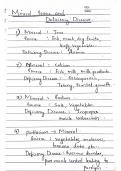 Mineral Name and
Deficiency Disease
1) Mineral : Iron
Source : Fish, meat, dry fruits,
leafy vegetables
Deficiency Disease : Anemia
2) Mineral : Calcium
Source : Fish, milk, milk products
Deficiency Disease : Osteoporosis
Tetany, stunted growth
3) Mineral : Sodium
Source : Salt, Vegetables
Deficiency Disease : Improper
muscle contraction
4) Potassium : Mineral
Source : vegetables,
banana
Deficiency Disease : disorder,
poor muscle control leading to
paralysis